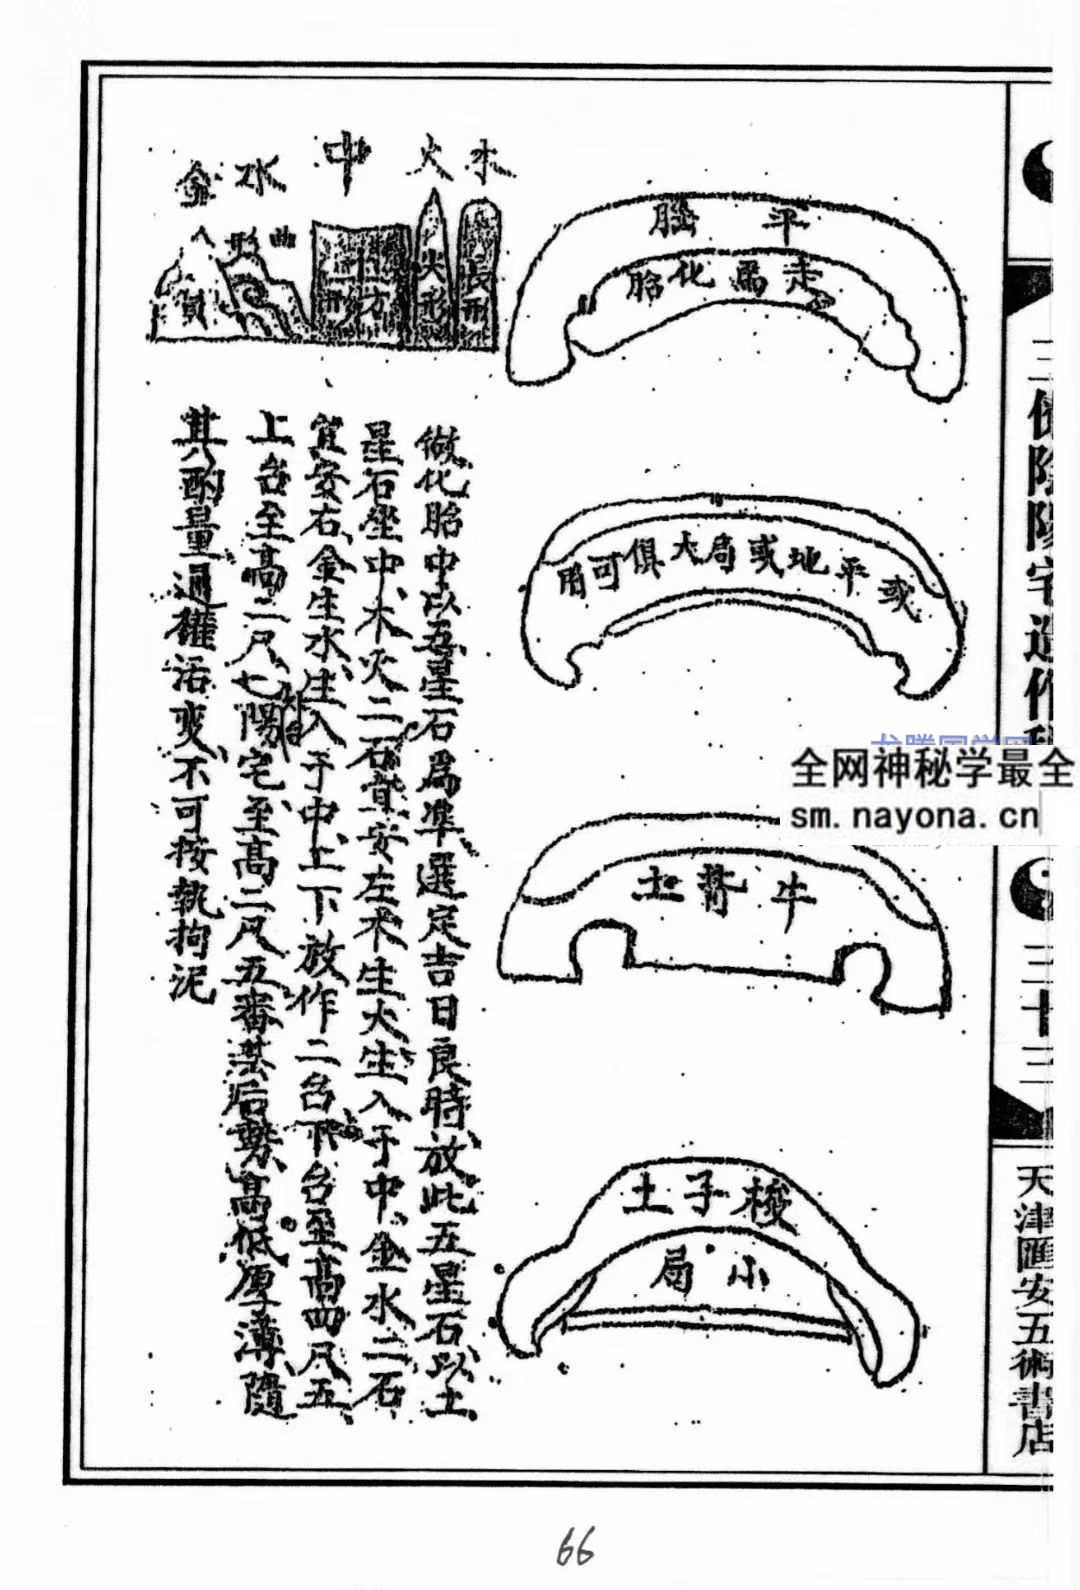 三
陰陽宅造作
三十三
天津匯安五術書店
平腦
走馬化胎
或平地或局大俱可用
牛背土
梭子土
小局
木
火
中
水
金
長形
火形
四方
曲形
做化胎中以五星石爲準選定吉日良時放此五星石以土
星石坐中木火二石皆安左木生火生入于中金水二石
宜安右金生水生入于中上下放作二台下台至高四尺五
上台至高二尺七陽宅至高二尺五審其后勢高低厚薄隨
其酌量通權活變不可按執拘泥
全网神秘学最全
sm.nayona.cn
66